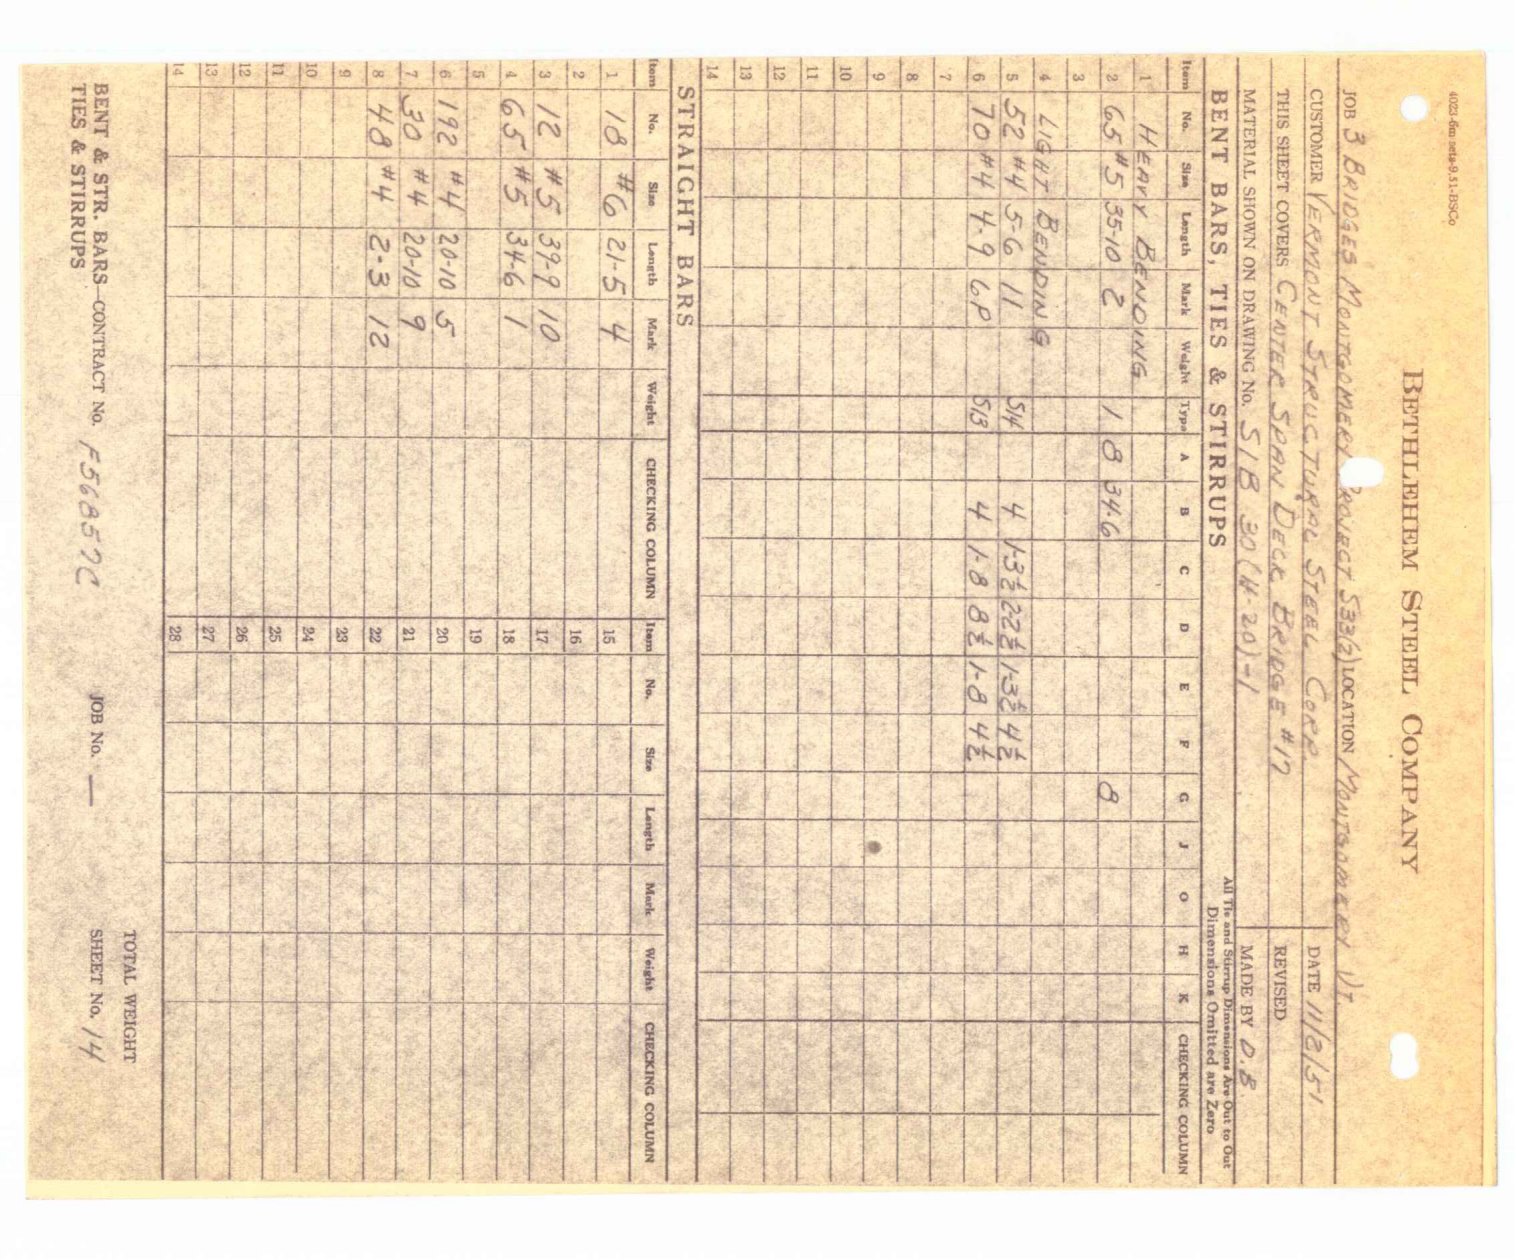 4023-6m sets-9.51-BSCo
BETHLEHEM STEEL COMPANY
JOB 3 BRIDGES MONTGOMERY PROJECT S33(2) LOCATION MONTGOMERY VT
CUSTOMER VERMONT STRUCTURAL STEEL CORP. DATE 11/8/51
THIS SHEET COVERS CENTER SPAN DECK BRIDGE #17 REVISED
MATERIAL SHOWN ON DRAWING No. SIB 30 (4-20)-1 MADE BY O.B.
BENT BARS, TIES & STIRRUPS All Tie and Stirrup Dimensions Are Out to Out
Dimensions Omitted are Zero
Item No. Size Length Mark Weight Type A B C D E F G J O H K CHECKING COLUMN
1 HEAVY BENDING
2 65 #5 35-10 2 1 8 34-6 8
3
4 LIGHT BENDING
5 52 #4 5-6 11 S14 4 1-3½ 22½ 1-3½ 4½
6 70 #4 4-9 6P S13 4 1-8 8½ 1-8 4½
7
8
9
10
11
12
13
14
STRAIGHT BARS
Item No. Size Length Mark Weight CHECKING COLUMN Item No. Size Length Mark Weight CHECKING COLUMN
1 18 #6 21-5 4 15
2 16
3 12 #5 39-9 10 17
4 65 #5 34-6 1 18
5 19
6 192 #4 20-10 5 20
7 30 #4 20-10 9 21
8 48 #4 2-3 12 22
9 23
10 24
11 25
12 26
13 27
14 28
TOTAL WEIGHT
BENT & STR. BARS—CONTRACT No. F56857C JOB No. — SHEET No. 14
TIES & STIRRUPS